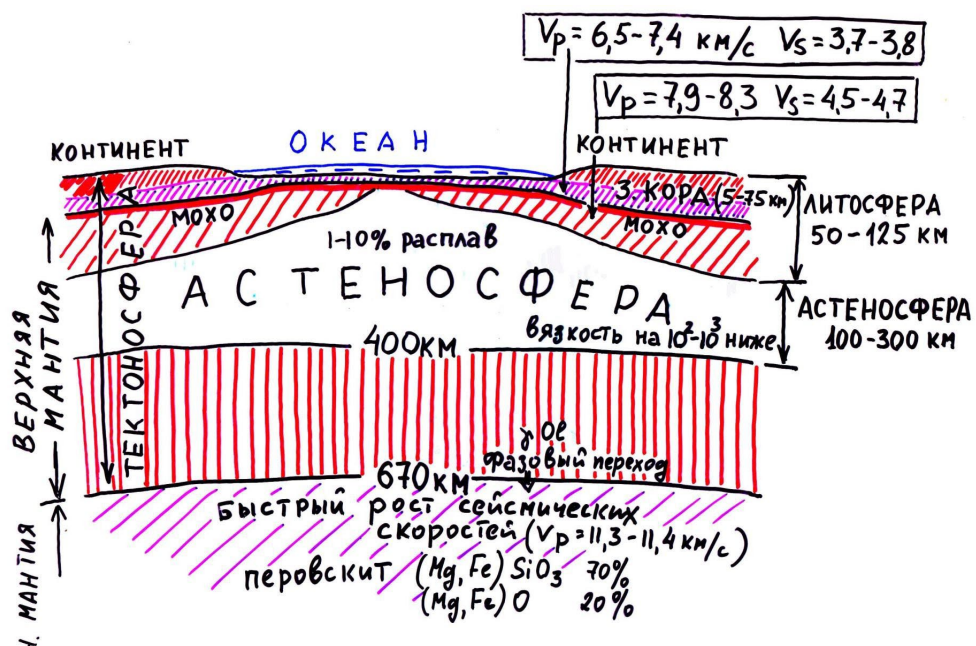 Vp = 6,5-7,4 км/с Vs = 3,7-3,8
Vp = 7,9-8,3 Vs = 4,5-4,7
ОКЕАН
КОНТИНЕНТ
КОНТИНЕНТ
З. КОРА (5-75 км)
МОХО
МОХО
ЛИТОСФЕРА
50-125 КМ
1-10% расплав
АСТЕНОСФЕРА
вязкость на 10²-10³ ниже
АСТЕНОСФЕРА
100-300 КМ
400КМ
ТЕКТОНОСФЕРА
ВЕРХНЯЯ
МАНТИЯ
γ Ol
фазовый переход
670КМ
Быстрый рост сейсмических
скоростей (Vp = 11,3-11,4 км/с)
перовскит (Mg, Fe) SiO₃ 70%
(Mg, Fe) O 20%
Н. МАНТИЯ